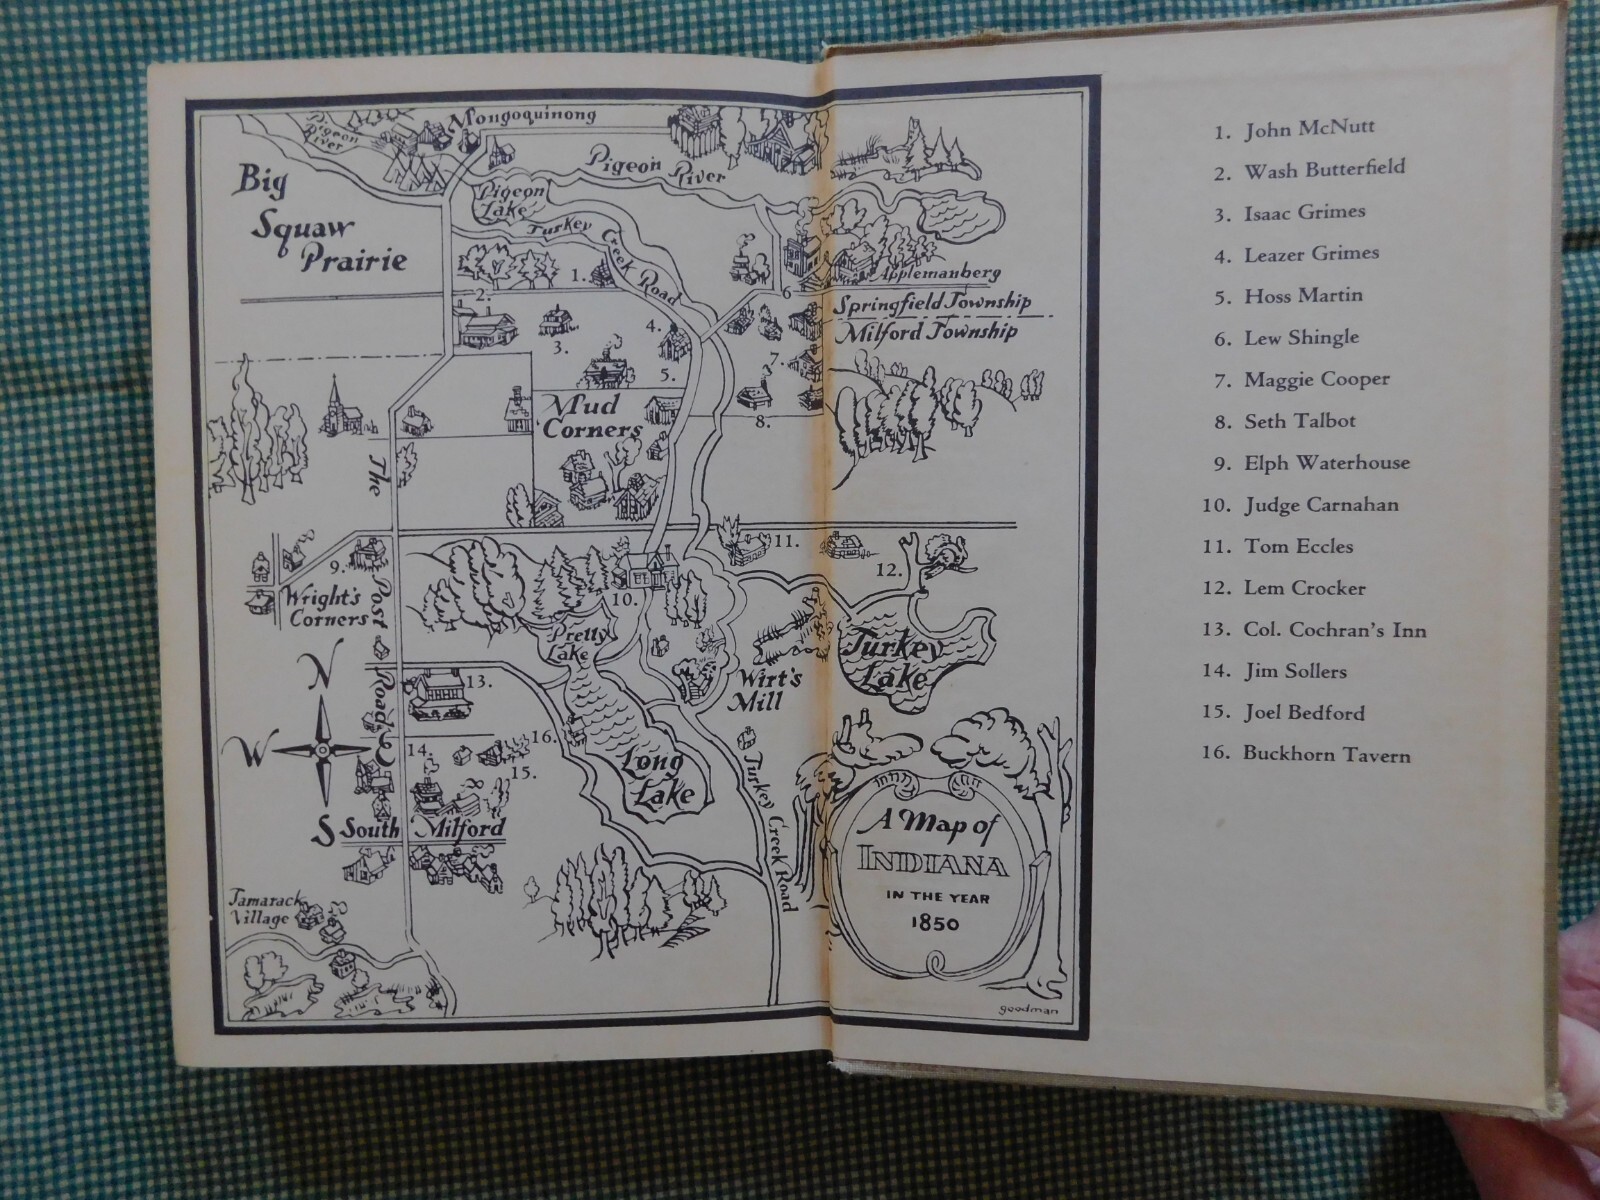 Mongoquinong
Pigeon
River
Big
Squaw
Prairie
Pigeon River
Pigeon
Lake
Turkey Creek Road
1.
2.
3.
4.
5.
6
7.
8.
Applemanberg
Springfield Township
Milford Township
Mud
Corners
The Post Road
9.
Wright's
Corners
10.
11.
12.
Pretty
Lake
Turkey
Lake
Wirt's
Mill
13.
14.
15.
16.
Long
Lake
Turkey Creek Road
N
W
E
S
South Milford
Tamarack
Village
A Map of
INDIANA
IN THE YEAR
1850
goodman
1. John McNutt
2. Wash Butterfield
3. Isaac Grimes
4. Leazer Grimes
5. Hoss Martin
6. Lew Shingle
7. Maggie Cooper
8. Seth Talbot
9. Elph Waterhouse
10. Judge Carnahan
11. Tom Eccles
12. Lem Crocker
13. Col. Cochran's Inn
14. Jim Sollers
15. Joel Bedford
16. Buckhorn Tavern